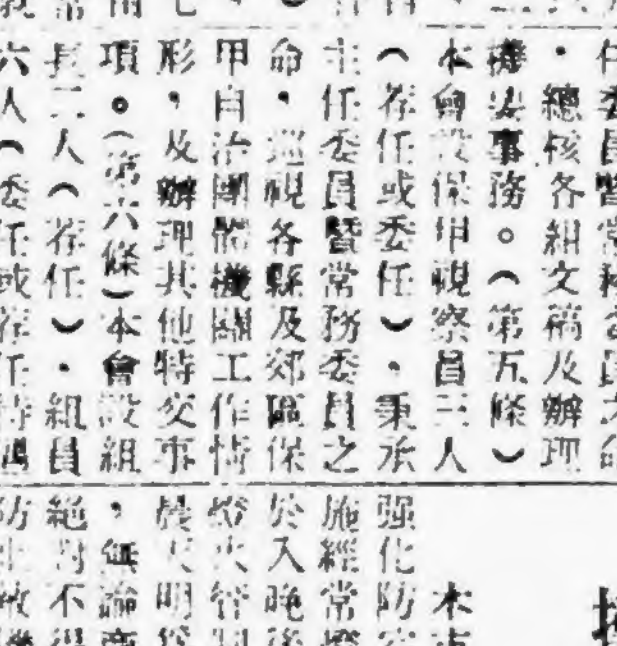 任委員暨常務委員之命
，總核各組文稿及辦理
機要事務。（第五條）
本會設保甲視察員三人
（荐任或委任），秉承
主任委員暨常務委員之
命，巡視各縣及郊區保
甲自治團體機關工作情
形，及辦理其他特交事
項。（第六條）本會設組
長二人（荐任），組員
六人（委任或荐任待遇
本市
强化防空
施經常燈
於入晚後
燈火管制
晨天明
，無論商
絕對不得
防止敵機